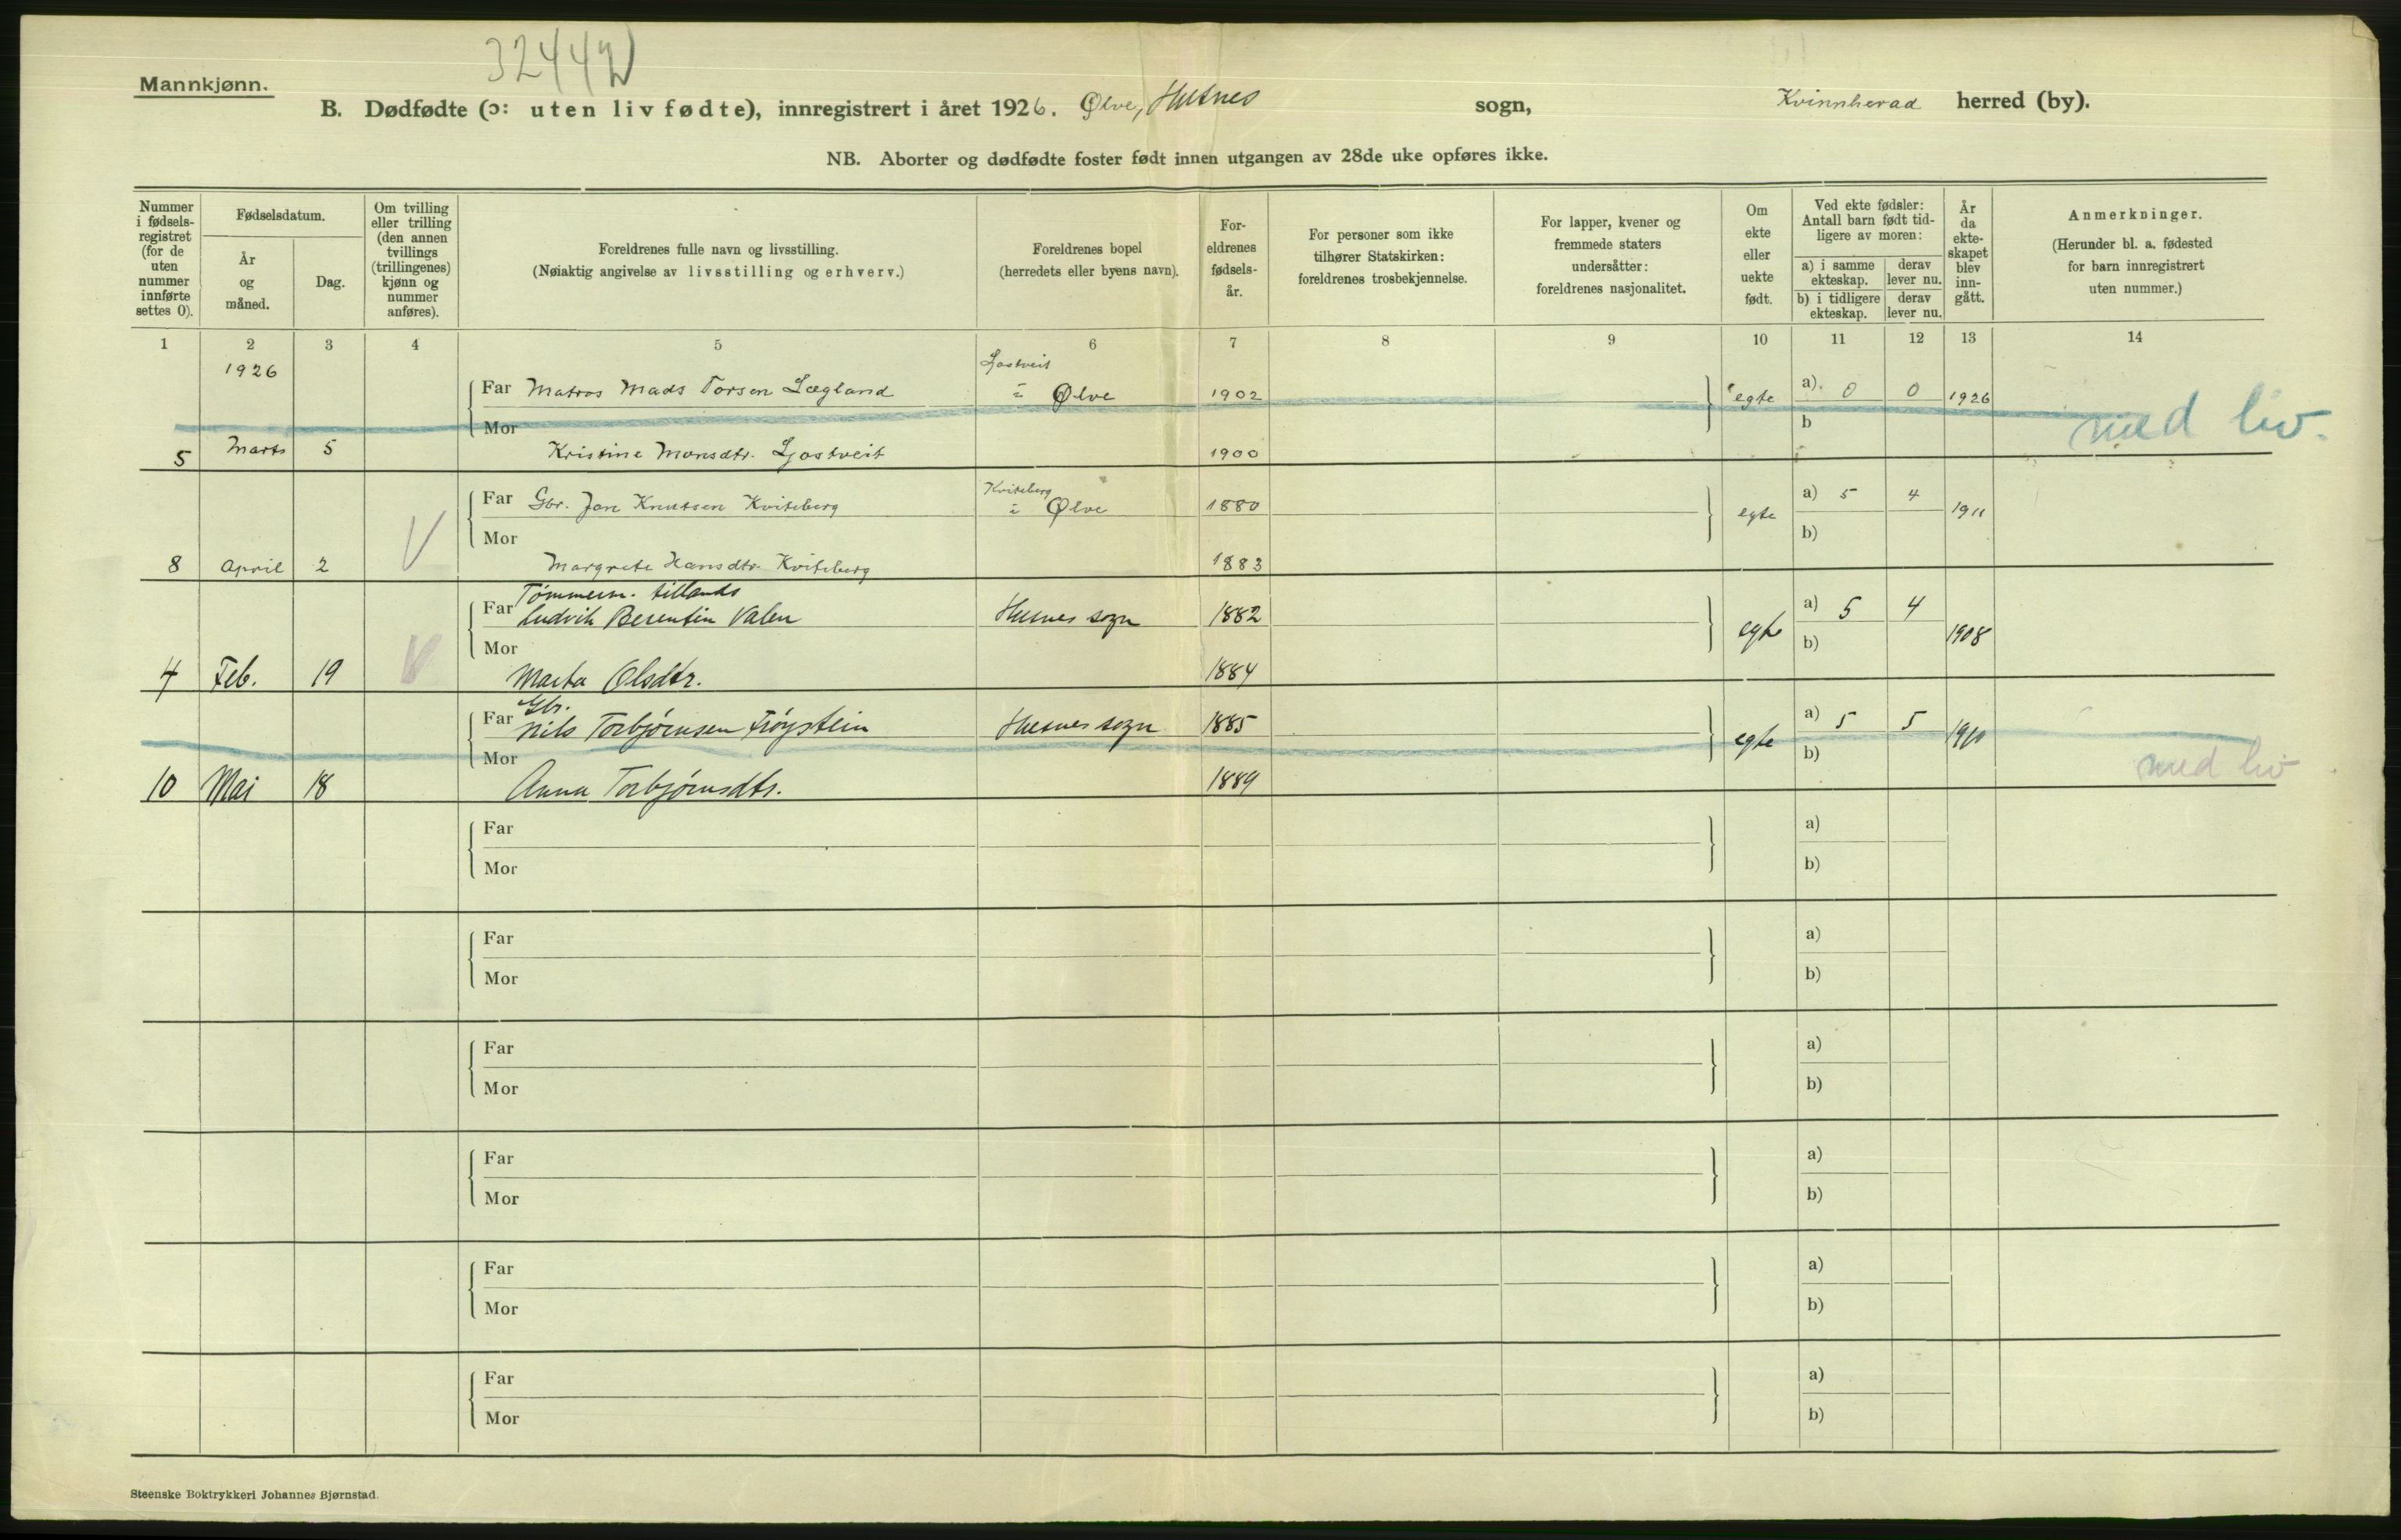 Mannkjønn.
B. Dødfødte (ɔ: uten liv fødte), innregistrert i året 1926. Ølve, Husnes sogn, Kvinnherad herred (by).
NB. Aborter og dødfødte foster født innen utgangen av 28de uke opføres ikke.
Nummer i fødsels-registret (for de uten nummer innførte settes 0).
Fødselsdatum.
År og måned.
Dag.
Om tvilling eller trilling (den annen tvillings (trillingenes) kjønn og nummer anføres).
Foreldrenes fulle navn og livsstilling.
(Nøiaktig angivelse av livsstilling og erhverv.)
Foreldrenes bopel
(herredets eller byens navn).
For-eldrenes fødsels-år.
For personer som ikke tilhører Statskirken: foreldrenes trosbekjennelse.
For lapper, kvener og fremmede staters undersåtter: foreldrenes nasjonalitet.
Om ekte eller uekte født.
Ved ekte fødsler: Antall barn født tid-ligere av moren:
a) i samme ekteskap. derav lever nu.
b) i tidligere ekteskap. derav lever nu.
År da ekte-skapet blev inn-gått.
Anmerkninger.
(Herunder bl. a. fødested for barn innregistrert uten nummer.)
1 2 3 4 5 6 7 8 9 10 11 12 13 14
1926
Far Matros Mads Torsen Lægland Ljostveit i Ølve 1902 egte a) 0 0 1926
Mor b med liv.
5 Marts 5 Kristine Monsdtr. Ljostveit 1900
Far Gbr. Jon Knutsen Kviteberg Kviteberg i Ølve 1880 egte a) 5 4 1911
Mor b)
8 April 2 Margrete Hansdtr. Kviteberg 1883
Tømmerm. tillands
Far Ludvik Berentin Valen Husnes sogn 1882 egte a) 5 4 1908
Mor b)
4 Feb. 19 Marta Olsdtr. 1884
Gbr.
Far Nils Torbjørnsen Frøystein Husnes sogn 1885 egte a) 5 5 1910
Mor b) med liv
10 Mai 18 Anna Torbjørnsdtr. 1889
Far a)
Mor b)
Far a)
Mor b)
Far a)
Mor b)
Far a)
Mor b)
Far a)
Mor b)
Far a)
Mor b)
Steenske Boktrykkeri Johannes Bjørnstad.